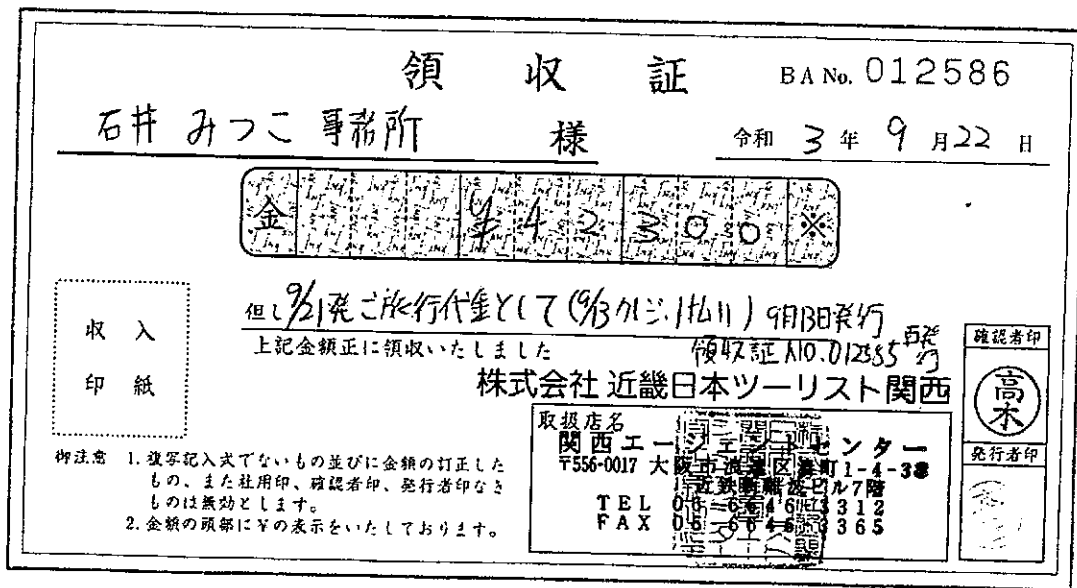 領収証 BA No. 012586
石井 みつこ 事務所 様 令和 3 年 9 月 22 日
金 ¥42300 ※
但し 9/21発ご旅行代金として (9/13クレジット払い) 9月13日発行
上記金額正に領収いたしました 領収証NO.012585 再発行
収入
印紙
株式会社 近畿日本ツーリスト関西
確認者印
高木
発行者印
取扱店名
関西エージェントセンター
〒556-0017 大阪市浪速区湊町1-4-38
近鉄難波ビル7階
TEL 06 6646 3312
FAX 06 6646 3365
御注意 1. 複写記入式でないもの並びに金額の訂正した
もの、また社用印、確認者印、発行者印なき
ものは無効とします。
2. 金額の頭部に¥の表示をいたしております。